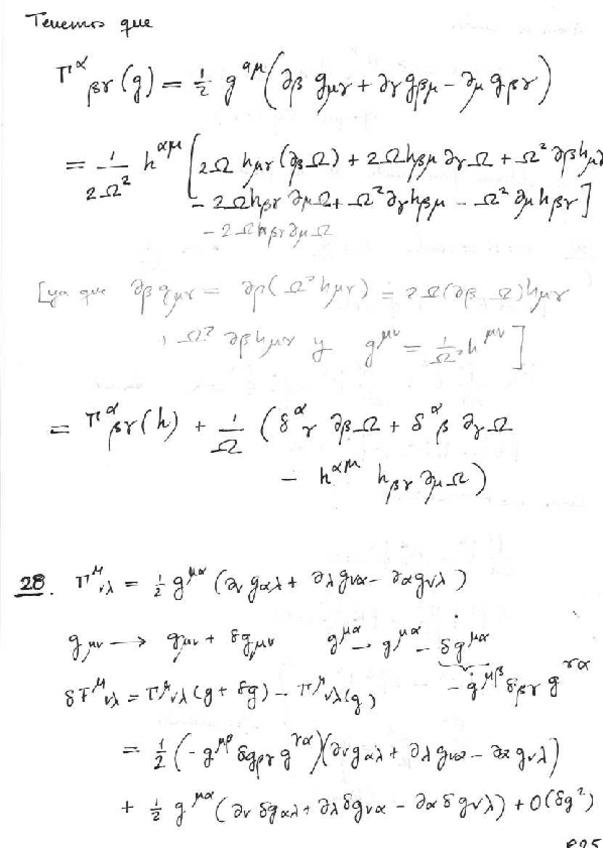 Tenemos que
Γ^α_βγ(g) = 1/2 g^αμ (∂β g_μγ + ∂γ g_βμ - ∂μ g_βγ)
= 1/(2Ω²) h^αμ [2Ω h_μγ (∂βΩ) + 2Ω h_βμ ∂γΩ + Ω² ∂β h_μγ
- 2Ω h_βγ ∂μΩ + Ω² ∂γ h_βμ - Ω² ∂μ h_βγ]
- 2Ω h_βγ ∂μΩ
[ya que ∂β g_μγ = ∂β(Ω² h_μγ) = 2Ω(∂βΩ) h_μγ
+ Ω² ∂β h_μγ y g^μν = 1/Ω² h^μν]
= Γ^α_βγ(h) + 1/Ω (δ^α_γ ∂βΩ + δ^α_β ∂γΩ
- h^αμ h_βγ ∂μΩ)
28. Γ^μ_νλ = 1/2 g^μα (∂ν g_αλ + ∂λ g_να - ∂α g_νλ)
g_μν → g_μν + δg_μν g^μα → g^μα - δg^μα
δΓ^μ_νλ = Γ^μ_νλ(g + δg) - Γ^μ_νλ(g) - g^μβ δ_βγ g^γα
= 1/2 (-g^μβ δg_βγ g^γα)(∂ν g_αλ + ∂λ g_να - ∂α g_νλ)
+ 1/2 g^μα (∂ν δg_αλ + ∂λ δg_να - ∂α δg_νλ) + O(δg²)